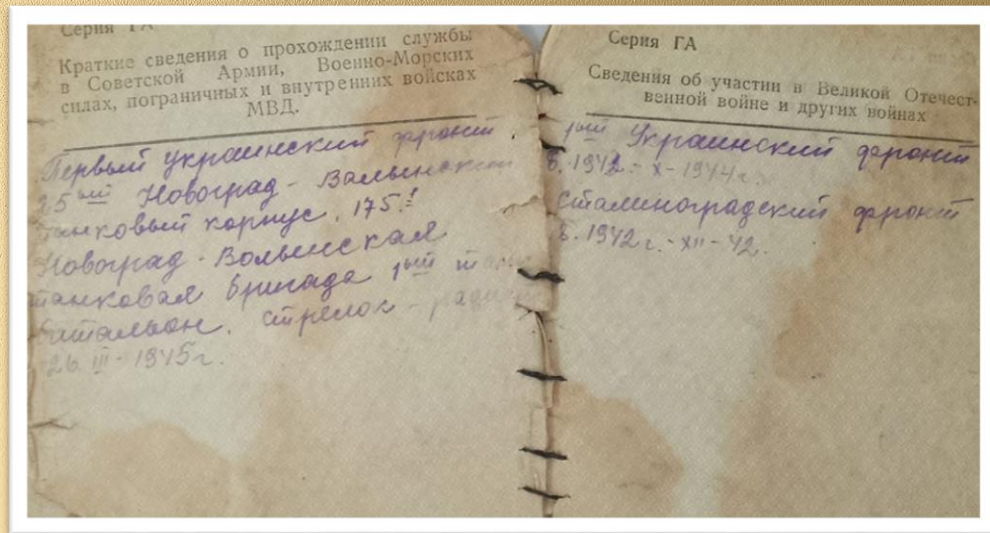 Серия ГА
Краткие сведения о прохождении службы
в Советской Армии, Военно-Морских
силах, пограничных и внутренних войсках
МВД.
Первый украинский фронт.
25ый Новоград-Волынский
танковый корпус. 175.
Новоград-Волынская
танковая бригада 1ый
батальон. Стрелок-
26. III-1945г.
Серия ГА
Сведения об участии в Великой Отечест-
венной войне и других войнах
1ый Украинский фронт
1942.-X-1944г.
Сталиноградский фронт
1942г.-XII-42.